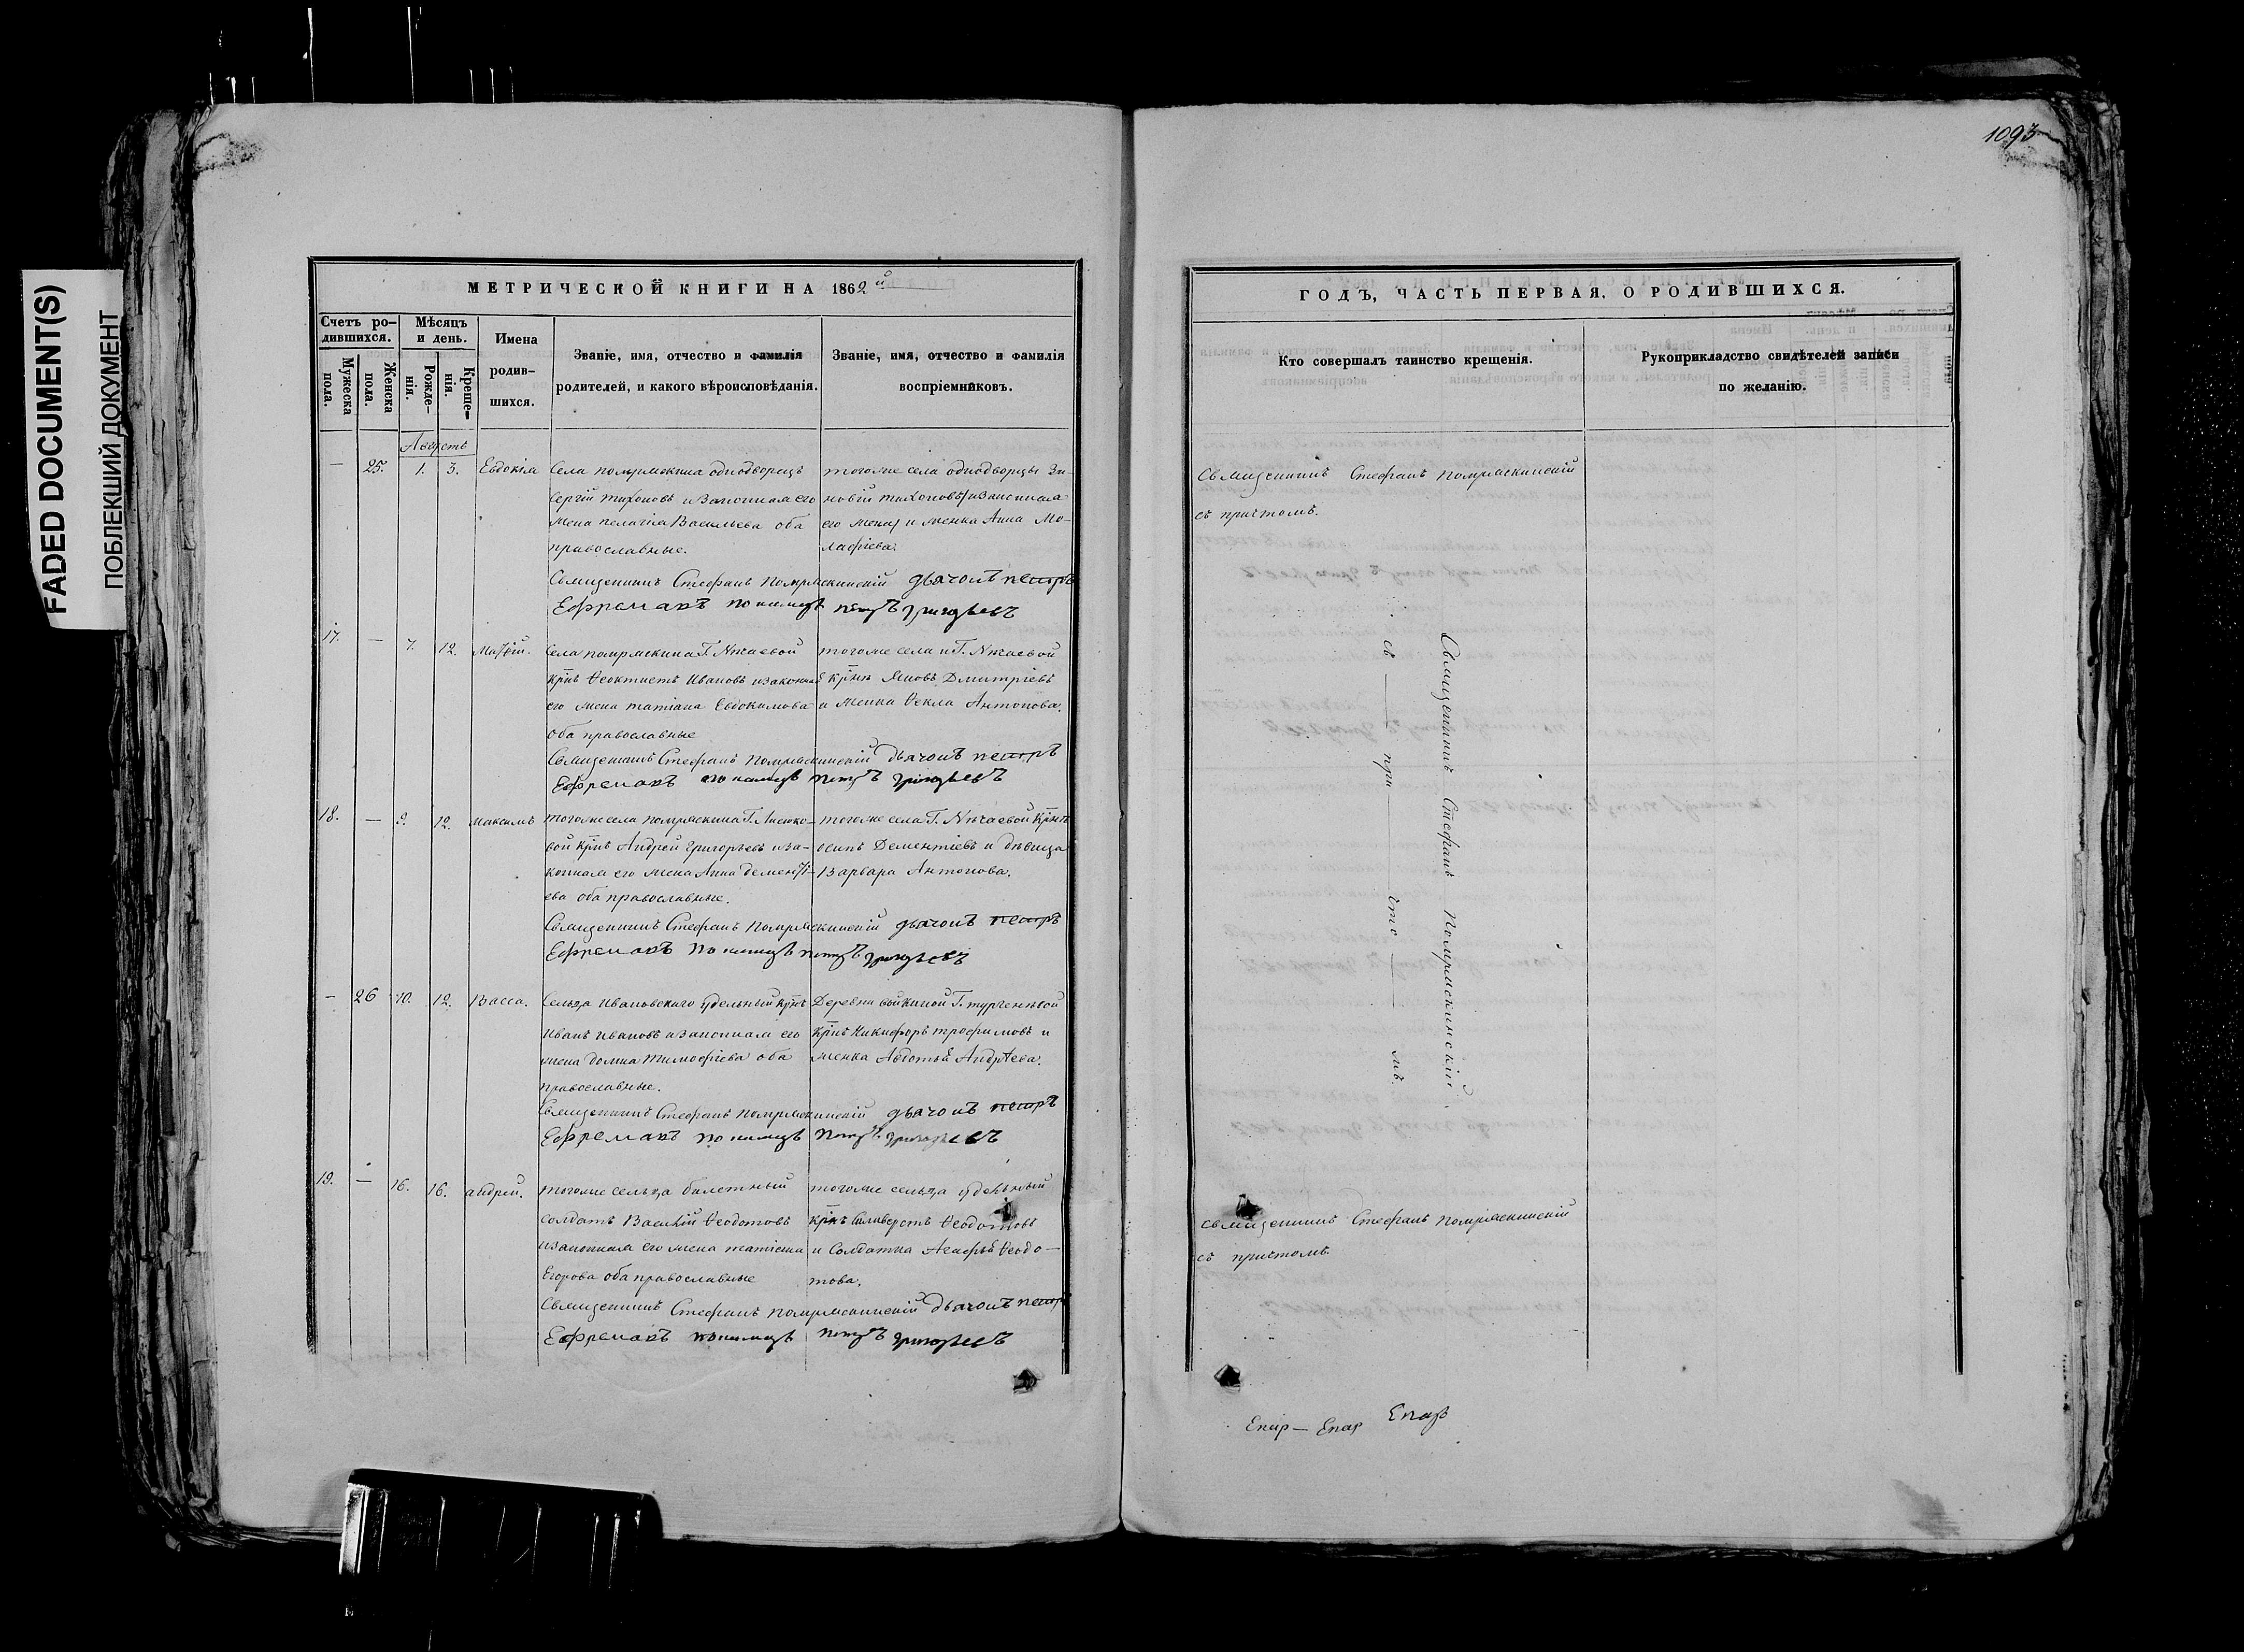 1093
FADED DOCUMENT(S)
ПОБЛЕКШИЙ ДОКУМЕНТ
МЕТРИЧЕСКОЙ КНИГИ НА 1862й
Счетъ ро-
дившихся.
Мужеска
пола.
Женска
пола.
Мѣсяцъ
и день.
Рожде-
нія.
Креще-
нія.
Имена
родив-
шихся.
Званіе, имя, отчество и фамилія
родителей, и какого вѣроисповѣданія.
Званіе, имя, отчество и фамилія
воспріемниковъ.
Августъ
— 25. 1. 3. Евдокіа
Села помряскина однодворецъ
Сергій тихоновъ и законная его
жена пелагіа Васильева оба
православные.
тогоже села однодворцы Зи-
новій тихоновъ
его жена) и женка Анна Ма-
лафіева.
Священникъ Стефанъ Помряскинскій дьячокъ петръ
Ефремовъ пономарь петръ григорьевъ
17. — 7. 12. Матѳій.
Села помряскина Г. Нѣчаевой
кр̃нъ Ѳеоктистъ Ивановъ и законная
его жена татіана Евдокимова
оба православные
тогоже села и Г. Нѣчаевой
кр̃нъ Яковъ Дмитріевъ
и женка Ѳекла Антонова.
Священникъ Стефанъ Помряскинскій дьячокъ петръ
Ефремовъ пономарь петръ григорьевъ
18. — 9. 12. Максимъ
тогоже села помряскина Г.
вой кр̃нъ Андрей григорьевъ и за-
конная его жена Анна дементі-
ева оба православные.
тогоже села Г. Нѣчаевой кр̃нъ
осипъ Дементіевъ и дѣвица
Варвара Антонова.
Священникъ Стефанъ Помряскинскій дьячокъ петръ
Ефремовъ пономарь петръ григорьевъ
— 26 10. 12. Васса.
Сельца Ивановскаго удѣльный кр̃нъ
Иванъ Ивановъ и законная его
жена домна тимофіева оба
православные.
Деревни войкиной Г. тургеневой
кр̃нъ Никифоръ трофимовъ и
женка Авдотья Андрѣева.
Священникъ Стефанъ Помряскинскій дьячокъ петръ
Ефремовъ пономарь петръ григорьевъ
19. — 16. 16. андрей.
тогоже сельца билетный
солдатъ Василій Ѳеодотовъ
и законная его жена татіана
Егорова оба православные
тогоже сельца удѣльный
кр̃нъ Силиверстъ Ѳеодотовъ
и Солдатка Агафья Ѳеодо-
това.
Священникъ Стефанъ помряскинскій дьячокъ петръ
Ефремовъ пономарь петръ григорьевъ
ГОДЪ, ЧАСТЬ ПЕРВАЯ, О РОДИВШИХСЯ.
Кто совершалъ таинство крещенія.
Рукоприкладство свидѣтелей записи
по желанію.
Священникъ Стефанъ помряскинскій
съ причтомъ.
Священникъ Стефанъ Помряскинскій
съ — при — что — мъ.
Священникъ Стефанъ помряскинскій
съ причтомъ.
Епар — Епар Епар